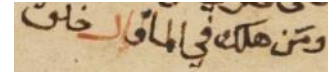 ومَن هلك في الماء قال خلق